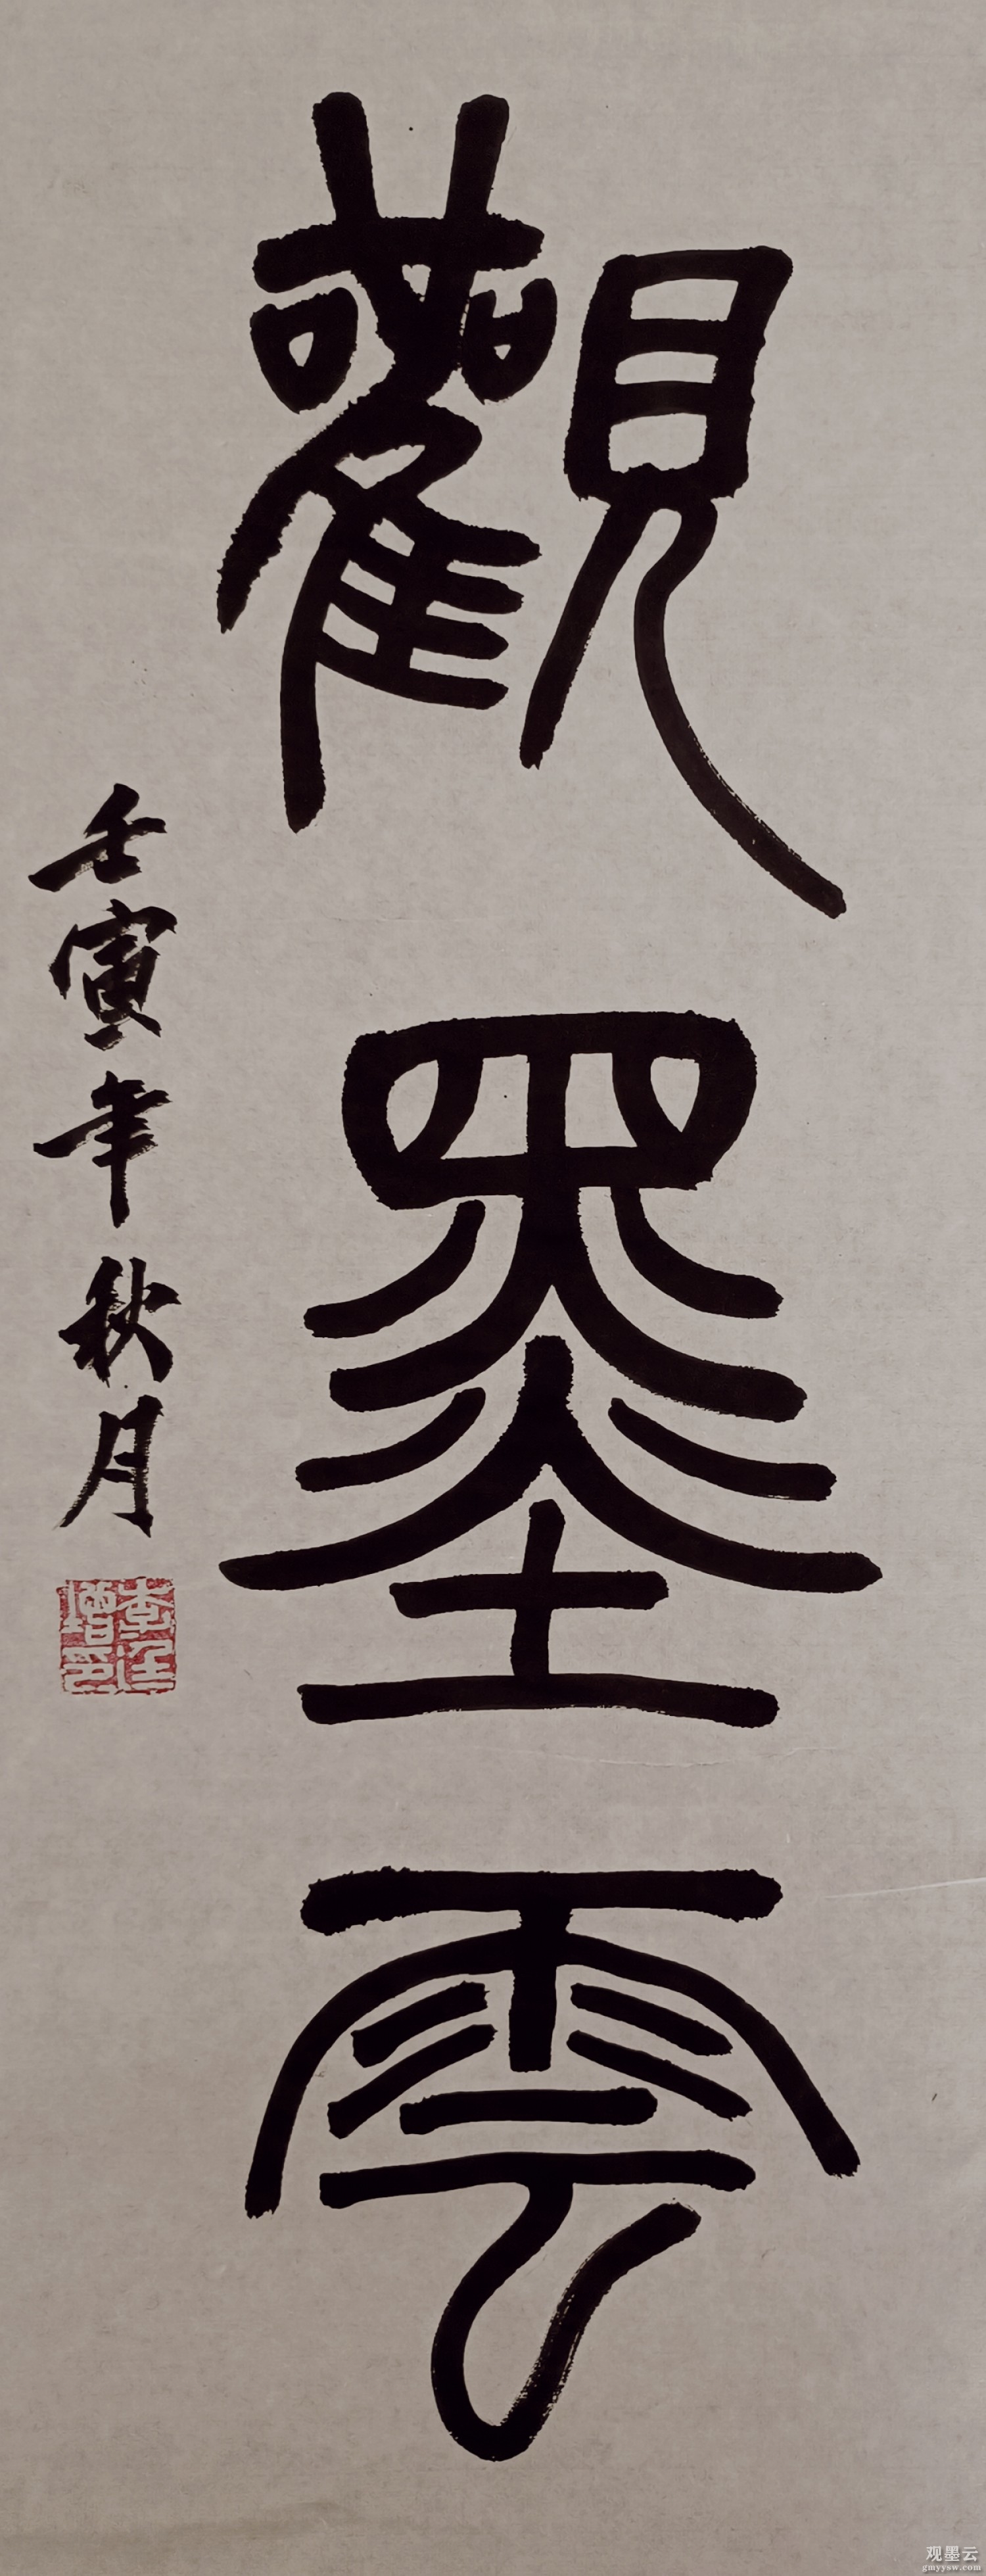 觀墨雲
壬寅年秋月
观墨云
gmyysw.com